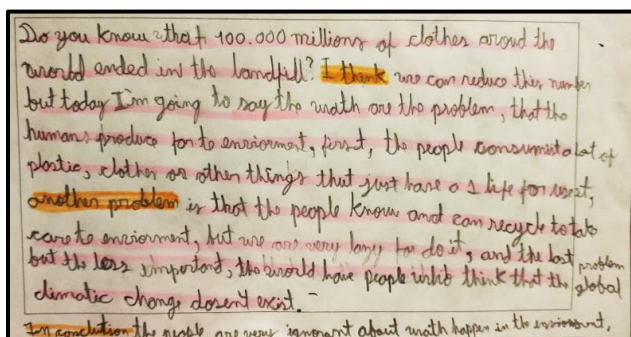 Do you know that 100.000 millions of clothes aroud the
world ended in the landfill? I think we can reduce this number
but today I'm going to say the wath are the problem, that the
humans produce for to enviorment, first, the people consumist a lot of
plastic, clother or other things that just have a 1 life for uset,
another problem is that the people know and can recycle to take
care to enviorment, but we are very lazy for do it, and the last problem
but the less important, the world have people who think that the global
climatic change dosent exist.
In conclution the people are very ignorant about wath happen in the enviorment,